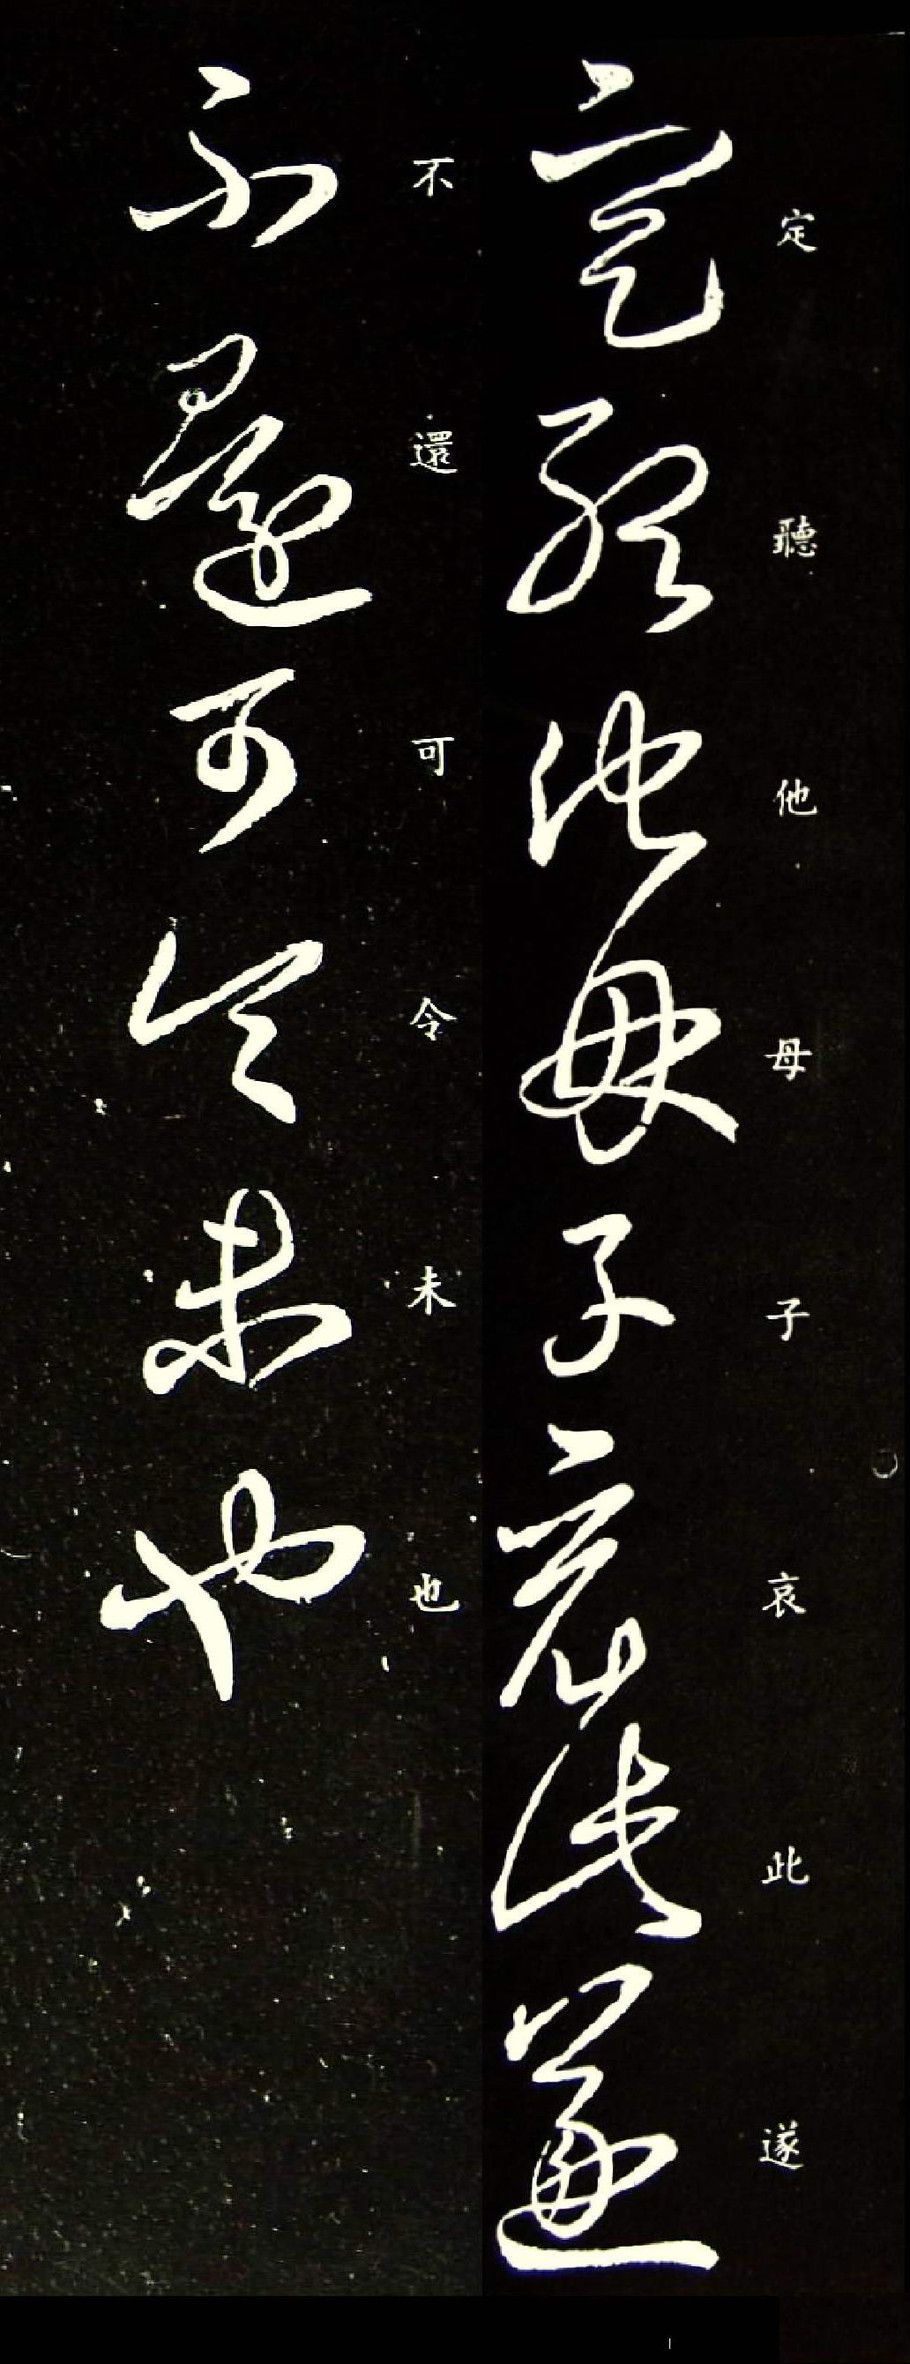 定聽他母子哀此遂
不還可令未也